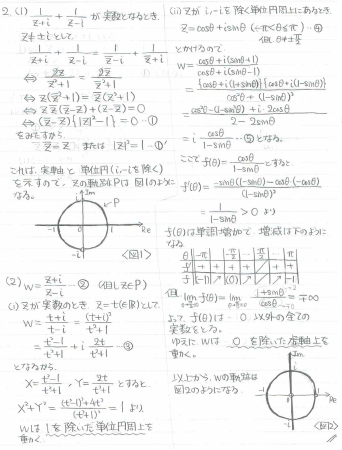 2. (1) 1/(z+i) + 1/(z-i) が実数となるとき,
z≠±iとして
1/(z+i) + 1/(z-i) = 1/(z̄+i) + 1/(z̄-i)
⇔ 2z/(z²+1) = 2z̄/(z̄²+1)
⇔ z(z̄²+1) = z̄(z²+1)
⇔ zz̄(z̄-z)+(z-z̄)=0
⇔ (z-z̄){|z|²-1}=0 …①
をみたすから
z=z̄ または |z|=1 …①'
これは, 実軸と 単位円(i,-iを除く)
を示すので, zの軌跡Pは 図1のように
なる。
Im
P
i
-1
0
1
Re
-i
<図1>
(2) w = (z+i)/(z-i) …② (但しz∈P)
(i) zが実数のとき, z=t(t∈R)として
w = (t+i)/(t-i) = (t+i)²/(t²+1)
= (t²-1)/(t²+1) + i 2t/(t²+1) …③
となるから,
X = (t²-1)/(t²+1), Y = 2t/(t²+1) とすると
X²+Y² = {(t²-1)²+4t²}/(t²+1)² = 1 より
wは 1を除いた単位円周上を
動く.
(ii) zが i,-iを除く単位円周上にあるとき,
z=cosθ+isinθ (-π<θ≦π) …④
但し θ≠±π/2
とかけるので,
w = {cosθ+i(sinθ+1)}/{cosθ+i(sinθ-1)}
= {cosθ+i(1+sinθ)}{cosθ+i(1-sinθ)}/{cos²θ+(1-sinθ)²}
= {cos²θ-(1-sin²θ)+i·2cosθ}/(2-2sinθ)
= i cosθ/(1-sinθ) …⑤となる。
ここで f(θ) = cosθ/(1-sinθ) とすると
f'(θ) = {-sinθ(1-sinθ)-cosθ·(-cosθ)}/(1-sinθ)²
= 1/(1-sinθ) > 0 より
f(θ)は単調増加で, 増減は下のように
なる
θ -π … -π/2 … π/2 … π
f' + + + +
f (-1) ↗ (0) ↗ ↗ (-1)
但, lim f(θ) = lim (1+sinθ)/cosθ = ∓∞
よって f(θ)は 0 以外の全ての
実数をとる。
ゆえに wは 0を除いた虚軸上を
動く。
以上から, wの軌跡は
図2のようになる。
Im
i
-1
0
1
Re
-i
<図2>